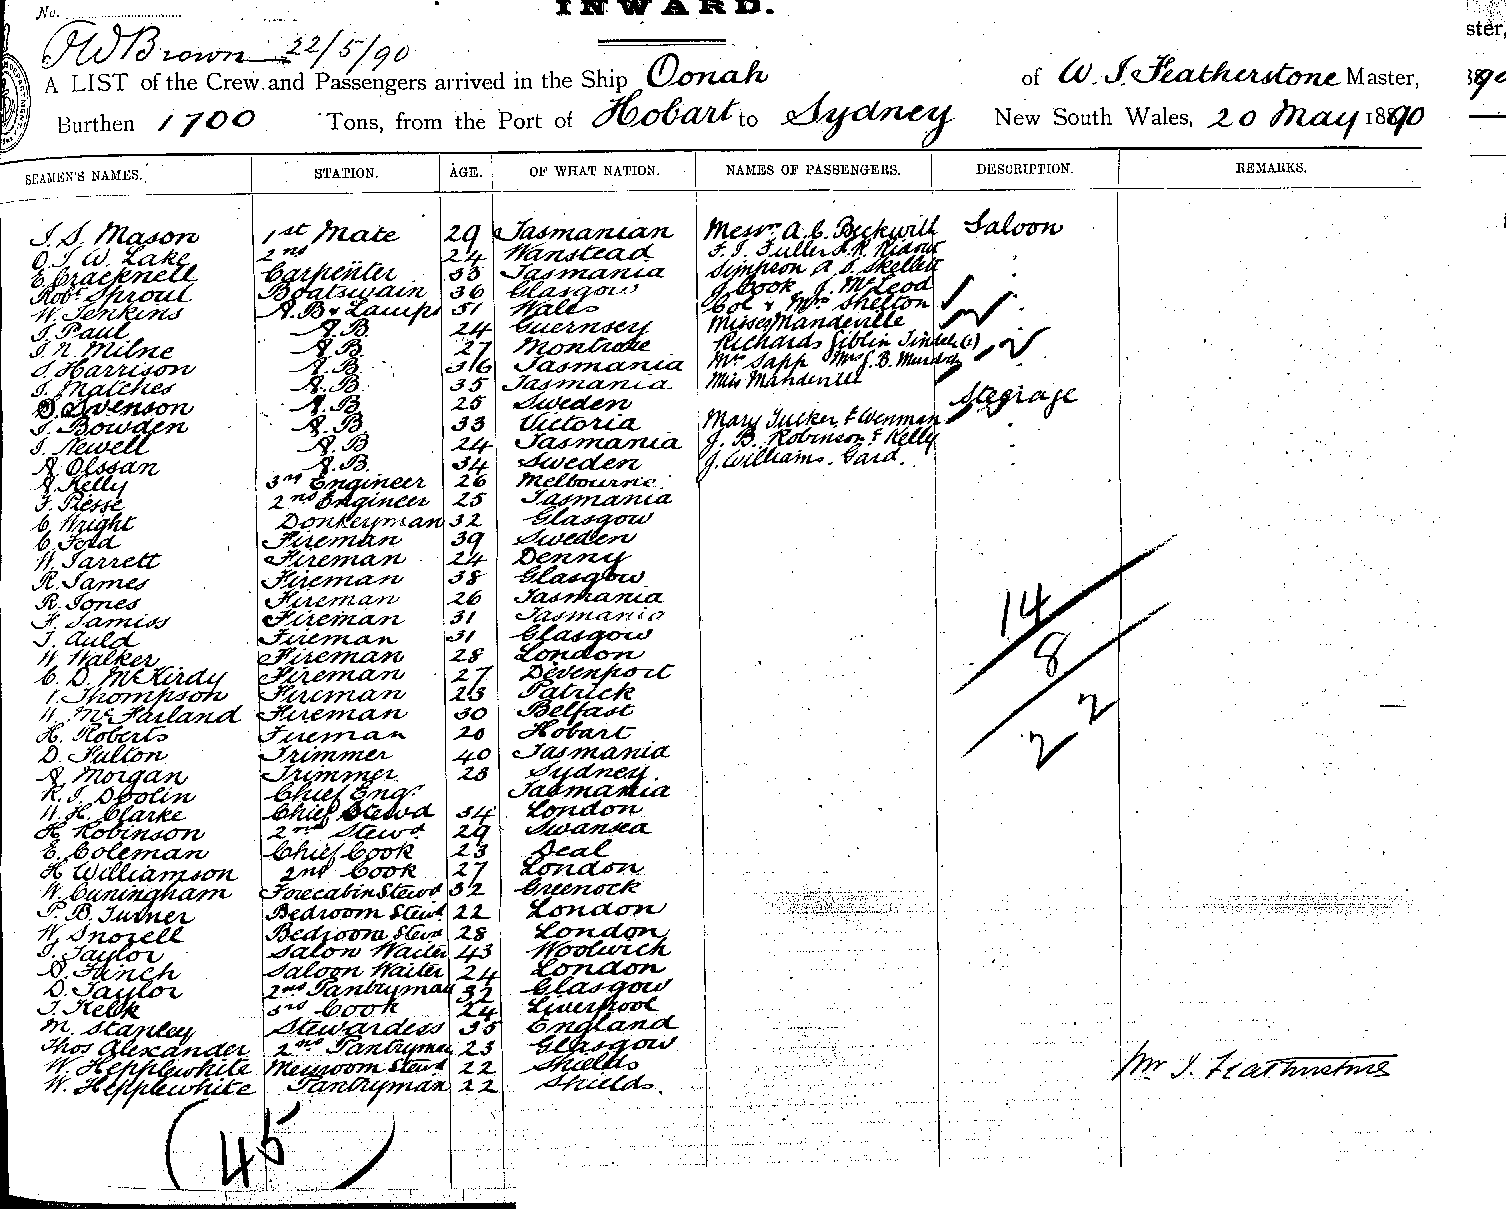 No.
INWARD.
Brown 22/5/90
A LIST of the Crew and Passengers arrived in the Ship Oonah of W. J. Featherstone Master,
Burthen 1700 Tons, from the Port of Hobart to Sydney New South Wales, 20 May 1890
SEAMEN'S NAMES. STATION. AGE. OF WHAT NATION. NAMES OF PASSENGERS. DESCRIPTION. REMARKS.
J. S. Mason 1st Mate 29 Tasmanian Messrs A. C. Beckwith Saloon
O. J. W. Lake 2nd 24 Wanstead F. J. Fuller
E. Cracknell Carpenter 33 Tasmania Simpson A. J. Skellett
Robt Sproul Boatswain 36 Glasgow J. Cook J. McLeod
W. Jenkins A.B & Lamps 51 Wales Col & Mrs Shelton
J. Paul A.B 24 Guernsey Misses Mandeville
J. N. Milne A.B 27 Montrose Richards Giblin
S. Harrison A.B 36 Tasmania Mrs Sapp Mrs J. B. Murdoch
J. Matches A.B 35 Tasmania Miss Mandeville
O. Svenson A.B 25 Sweden Steerage
J. Bowden A.B 33 Victoria Mary Tucker F Wenman
J. Newell A.B 24 Tasmania J. B. Robinson F Kelly
A. Olssan A.B. 34 Sweden J. Williams. Gard.
A. Kelly 3rd Engineer 26 Melbourne
F. Piesse 2nd Engineer 25 Tasmania
C. Wright Donkeyman 32 Glasgow
C. Ford Fireman 39 Sweden
W. Jarrett Fireman 24 Denny
R. James Fireman 38 Glasgow
R. Jones Fireman 26 Tasmania
F. Jamiss Fireman 31 Tasmania
J. Auld Fireman 31 Glasgow
W. Walker Fireman 28 London
C. D. McKirdy Fireman 27 Devenport
Thompson Fireman 23 Patrick
W. McFarland Fireman 30 Belfast
H. Roberts Fireman 20 Hobart
D. Fulton Trimmer 40 Tasmania
A. Morgan Trimmer 23 Sydney.
R. J. Doolin Chief Engr Tasmania
W. H. Clarke Chief Stewd 34 London
H. Robinson 2nd Stewd 29 Swansea
E. Coleman Chief Cook 23 Deal
H Williamson 2nd Cook 27 London
W. Cuningham Forecabin Stewd 32 Greenock
P. B. Turner Bedroom Stewd 22 London
W. Snozell Bedroom Stewd 28 London
J. Taylor Salon Waiter 43 Woolwich
A. Finch Saloon Waiter 24 London
D. Taylor 2nd Pantryman 32 Glasgow
J. Kelk 3rd Cook 24 Liverpool
M. Stanley Stewardess 35 England
Thos Alexander 2nd Pantryman 23 Glasgow
W. Hepplewhite Messroom Stewd 22 Shields
W. Hepplewhite Pantryman 22 Shields.
14
8
22
Wm J. Featherstone
(45)